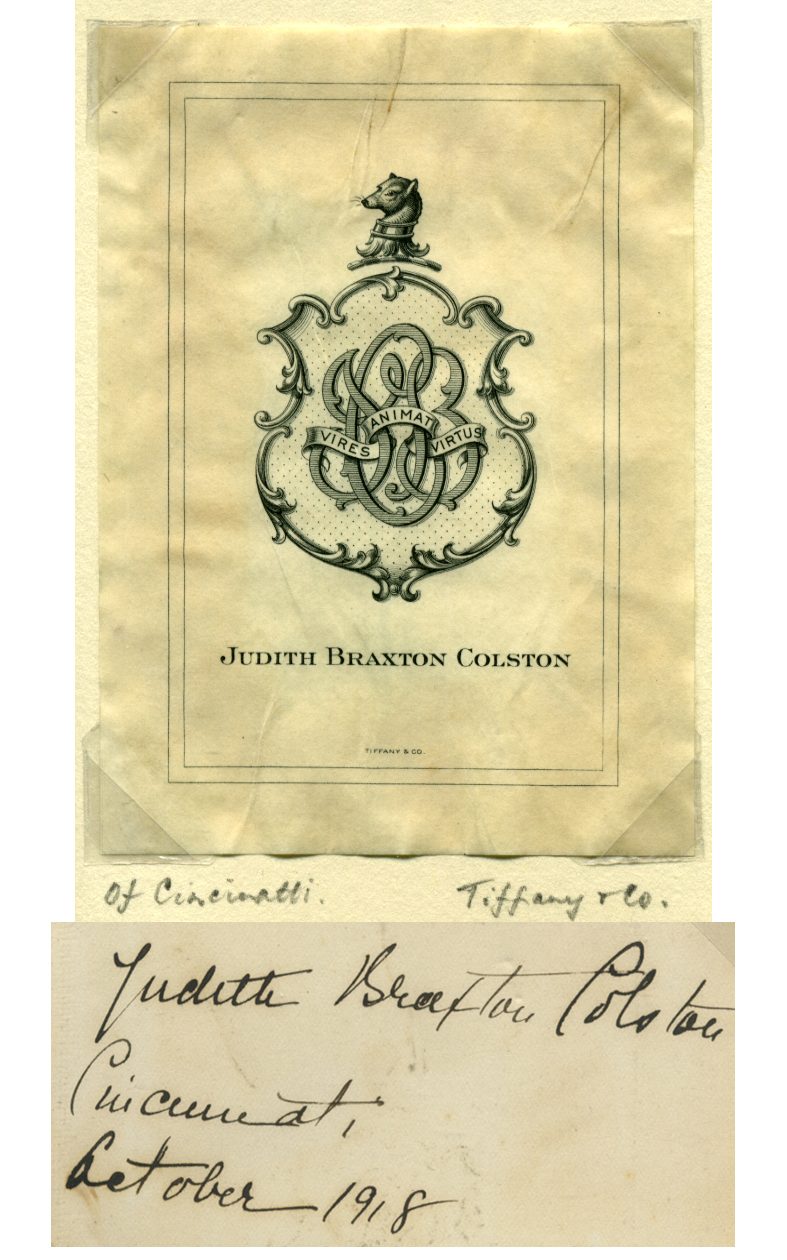 VIRES ANIMAT VIRTUS
JUDITH BRAXTON COLSTON
TIFFANY & CO.
Of Cincinatti. Tiffany & Co.
Judith Braxton Colston
Cincinnati,
October 1918